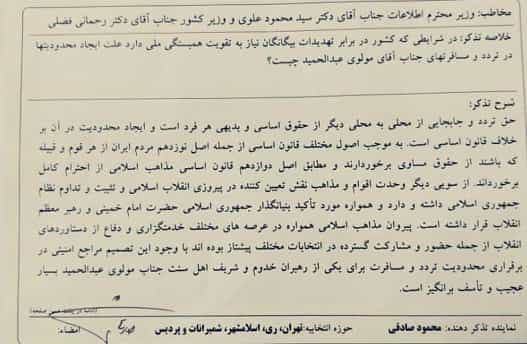 مخاطب: وزیر محترم اطلاعات جناب آقای دکتر سید محمود علوی و وزیر کشور جناب آقای دکتر رحمانی فضلی
خلاصه تذکر: در شرایطی که کشور در برابر تهدیدات بیگانگان نیاز به تقویت همبستگی ملی دارد علت ایجاد محدودیتها
در تردد و مسافرتهای جناب آقای مولوی عبدالحمید چیست؟
شرح تذکر:
حق تردد و جابجایی از محلی به محلی دیگر از حقوق اساسی و بدیهی هر فرد است و ایجاد محدودیت در آن بر
خلاف قانون اساسی است. به موجب اصول مختلف قانون اساسی از جمله اصل نوزدهم مردم ایران از هر قوم و قبیله
که باشند از حقوق مساوی برخوردارند و مطابق اصل دوازدهم قانون اساسی مذاهب اسلامی از احترام کامل
برخورداند. از سویی دیگر وحدت اقوام و مذاهب نقش تعیین کننده در پیروزی انقلاب اسلامی و تثبیت و تداوم نظام
جمهوری اسلامی داشته و دارد و همواره مورد تأکید بنیانگذار جمهوری اسلامی حضرت امام خمینی و رهبر معظم
انقلاب قرار داشته است. پیروان مذاهب اسلامی همواره در عرصه های مختلف خدمتگزاری و دفاع از دستاوردهای
انقلاب از جمله حضور و مشارکت گسترده در انتخابات مختلف پیشتاز بوده اند با وجود این تصمیم مراجع امنیتی در
برقراری محدودیت تردد و مسافرت برای یکی از رهبران خدوم و شریف اهل سنت جناب مولوی عبدالحمید بسیار
عجیب و تأسف برانگیز است.
نماینده تذکر دهنده: محمود صادقی حوزه انتخابیه: تهران، ری، اسلامشهر، شمیرانات و پردیس امضاء: